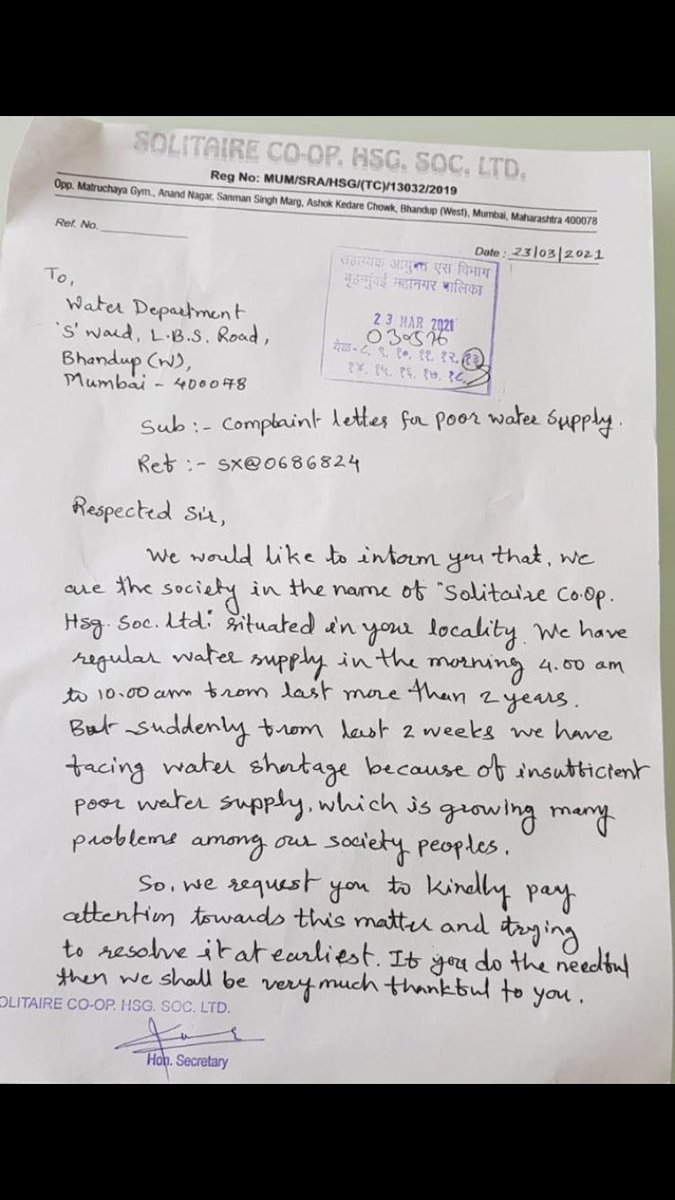 SOLITAIRE CO-OP. HSG. SOC. LTD.
Reg No: MUM/SRA/HSG/(TC)/13032/2019
Opp. Matruchaya Gym., Anand Nagar, Sanman Singh Marg, Ashok Kedare Chowk, Bhandup (West), Mumbai, Maharashtra 400078
Ref. No.
Date : 23/03/2021
सहाय्यक आयुक्त एस विभाग
बृहन्मुंबई महानगर पालिका
23 MAR 2021
030576
वेळ-८, ९, १०, ११, १२, १३
१४, १५, १६, १७, १८
To,
Water Department
'S' Ward, L.B.S. Road,
Bhandup (W),
Mumbai - 400078
Sub :- Complaint letter for poor water supply.
Ref :- SX@0686824
Respected Sir,
We would like to inform you that, we
are the society in the name of "Solitaire Co.Op.
Hsg. Soc. Ltd." situated in your locality. We have
regular water supply in the morning 4.00 am
to 10.00 am from last more than 2 years.
But suddenly from last 2 weeks we have
facing water shortage because of insufficient
poor water supply, which is growing many
problems among our society peoples.
So, we request you to kindly pay
attention towards this matter and trying
to resolve it at earliest. If you do the needful
then we shall be very much thankful to you.
OLITAIRE CO-OP. HSG. SOC. LTD.
Hon. Secretary